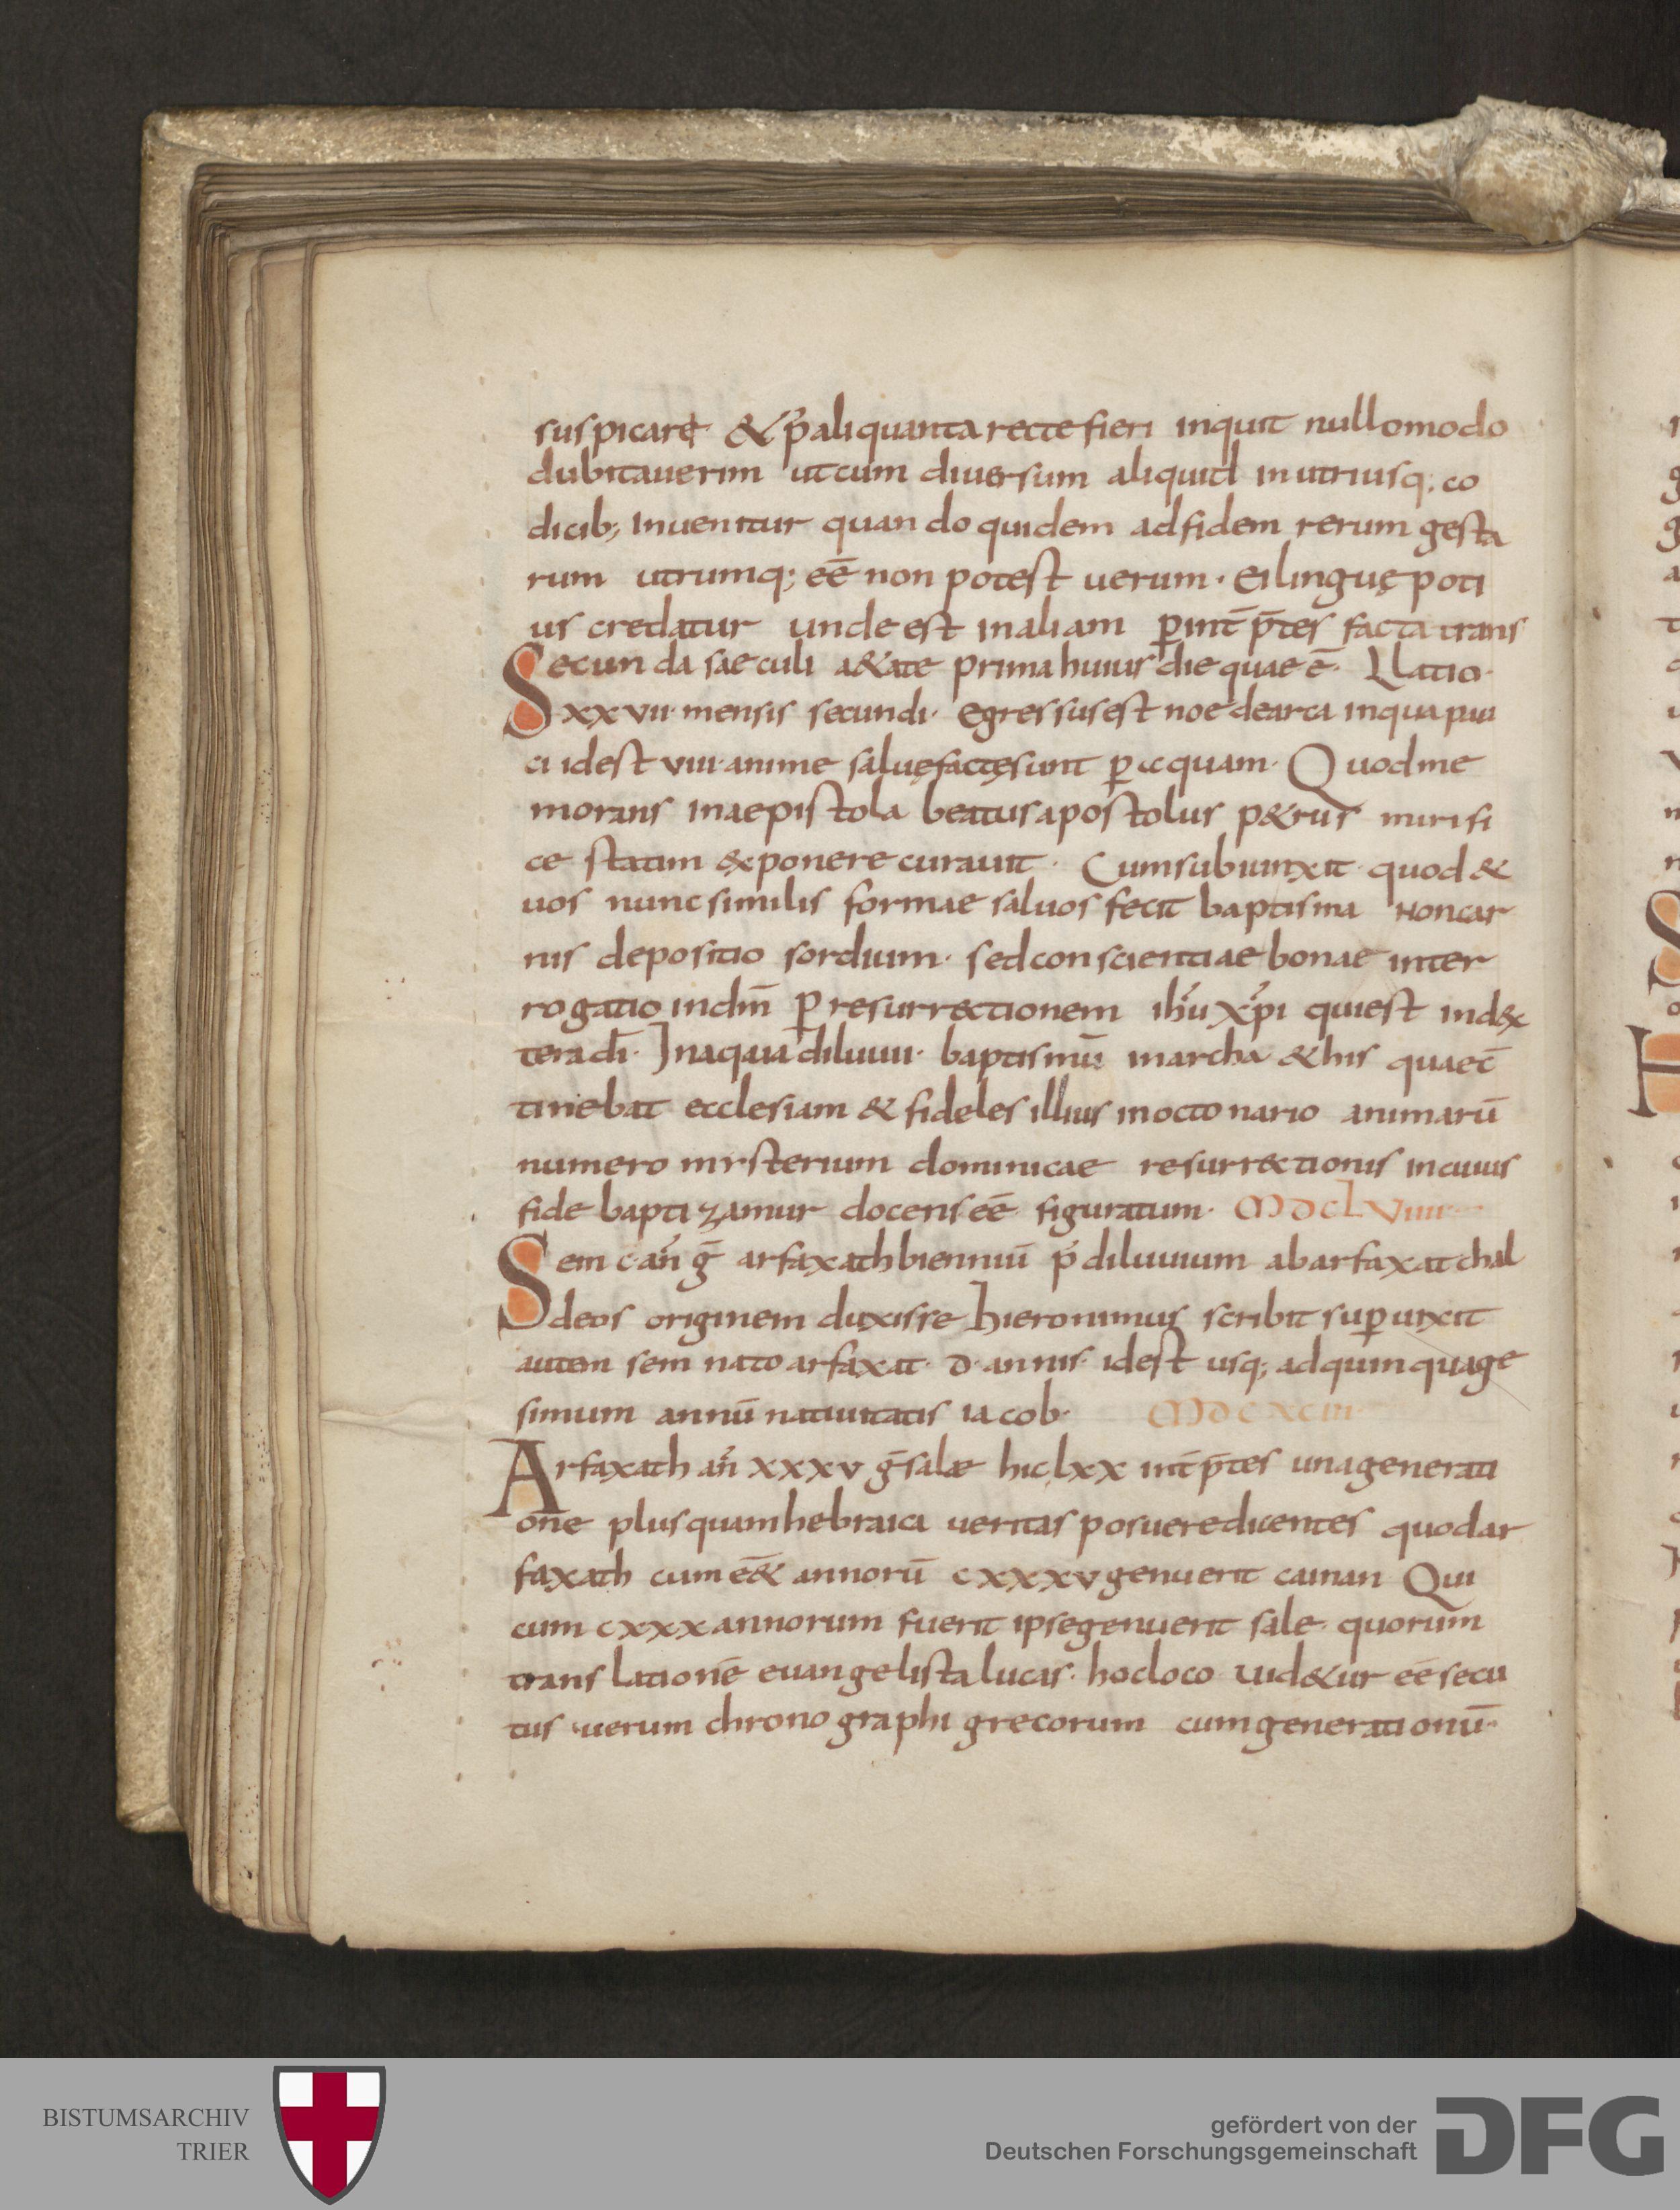 suspicaret᷒ & p̄ aliquanta recte fieri inquit nullomodo
dubitauerim ut cum diuersum aliquid in utriusq; co
dicib; inuenitur quan do quidem ad fidem rerum gesta
rum utrumq; eē non potest uerum · ei linguę poti
us credatur unde est in aliam ꝑ int̄p̄tes facta trans
Secunda saeculi a&ate prima huius die quae ē · Llatio ·
xxvii · mensis secundi · egressus est noe de arca in qua pau
ci id est viii · anime saluę factę sunt ꝑ acquam · Quod me
morans in aepistola beatus apostolus p&rus mirifi
ce statim exponere curauit · Cum subiunxit · quod &
uos nunc similis formae saluos fecit baptisma Non car
nis depositio sordium · sed conscientiae bonae inter
rogatio in dm̄ ꝑ resurrectionem ih̄u xp̄i qui est in dex
tera dī · In aqua diluuii · baptismū in archa & his quae c̄
tinebat ecclesiam & fideles illius in octo nario animarū
numero mysterium dominicae resurrectionis in cuius
fide baptizamur docens eē figuratum · MDCLViiii
Sem c an̄ ḡ arfaxath bienniū p̄ diluuium ab arfaxat chal
deos originem duxisse hieronimus scribit suꝑuixit
autem sem nato arfaxat · D · annis · id est usq; ad quinquage
simum annū natiuitatis iacob · MDCXCiii ·
Arfaxath an̄ xxxv ḡ salæ hic lxx int̄p̄tes una generati
one plus quam hebraica ueritas posuere dicentes quod ar
faxath cum eē& annorū cxxxv genuerit cainan Qui
cum cxxx annorum fuerit ipse genuerit sale · quorum
translationē euangelista lucas · hoc loco uid&ur eē secu
tus uerum chronographi grecorum cum generationū ·
BISTUMSARCHIV
TRIER
gefördert von der
Deutschen Forschungsgemeinschaft
DFG